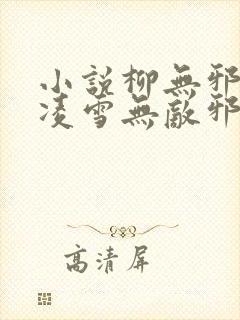 小說柳無邪
凌雪無敵邪
高清屏